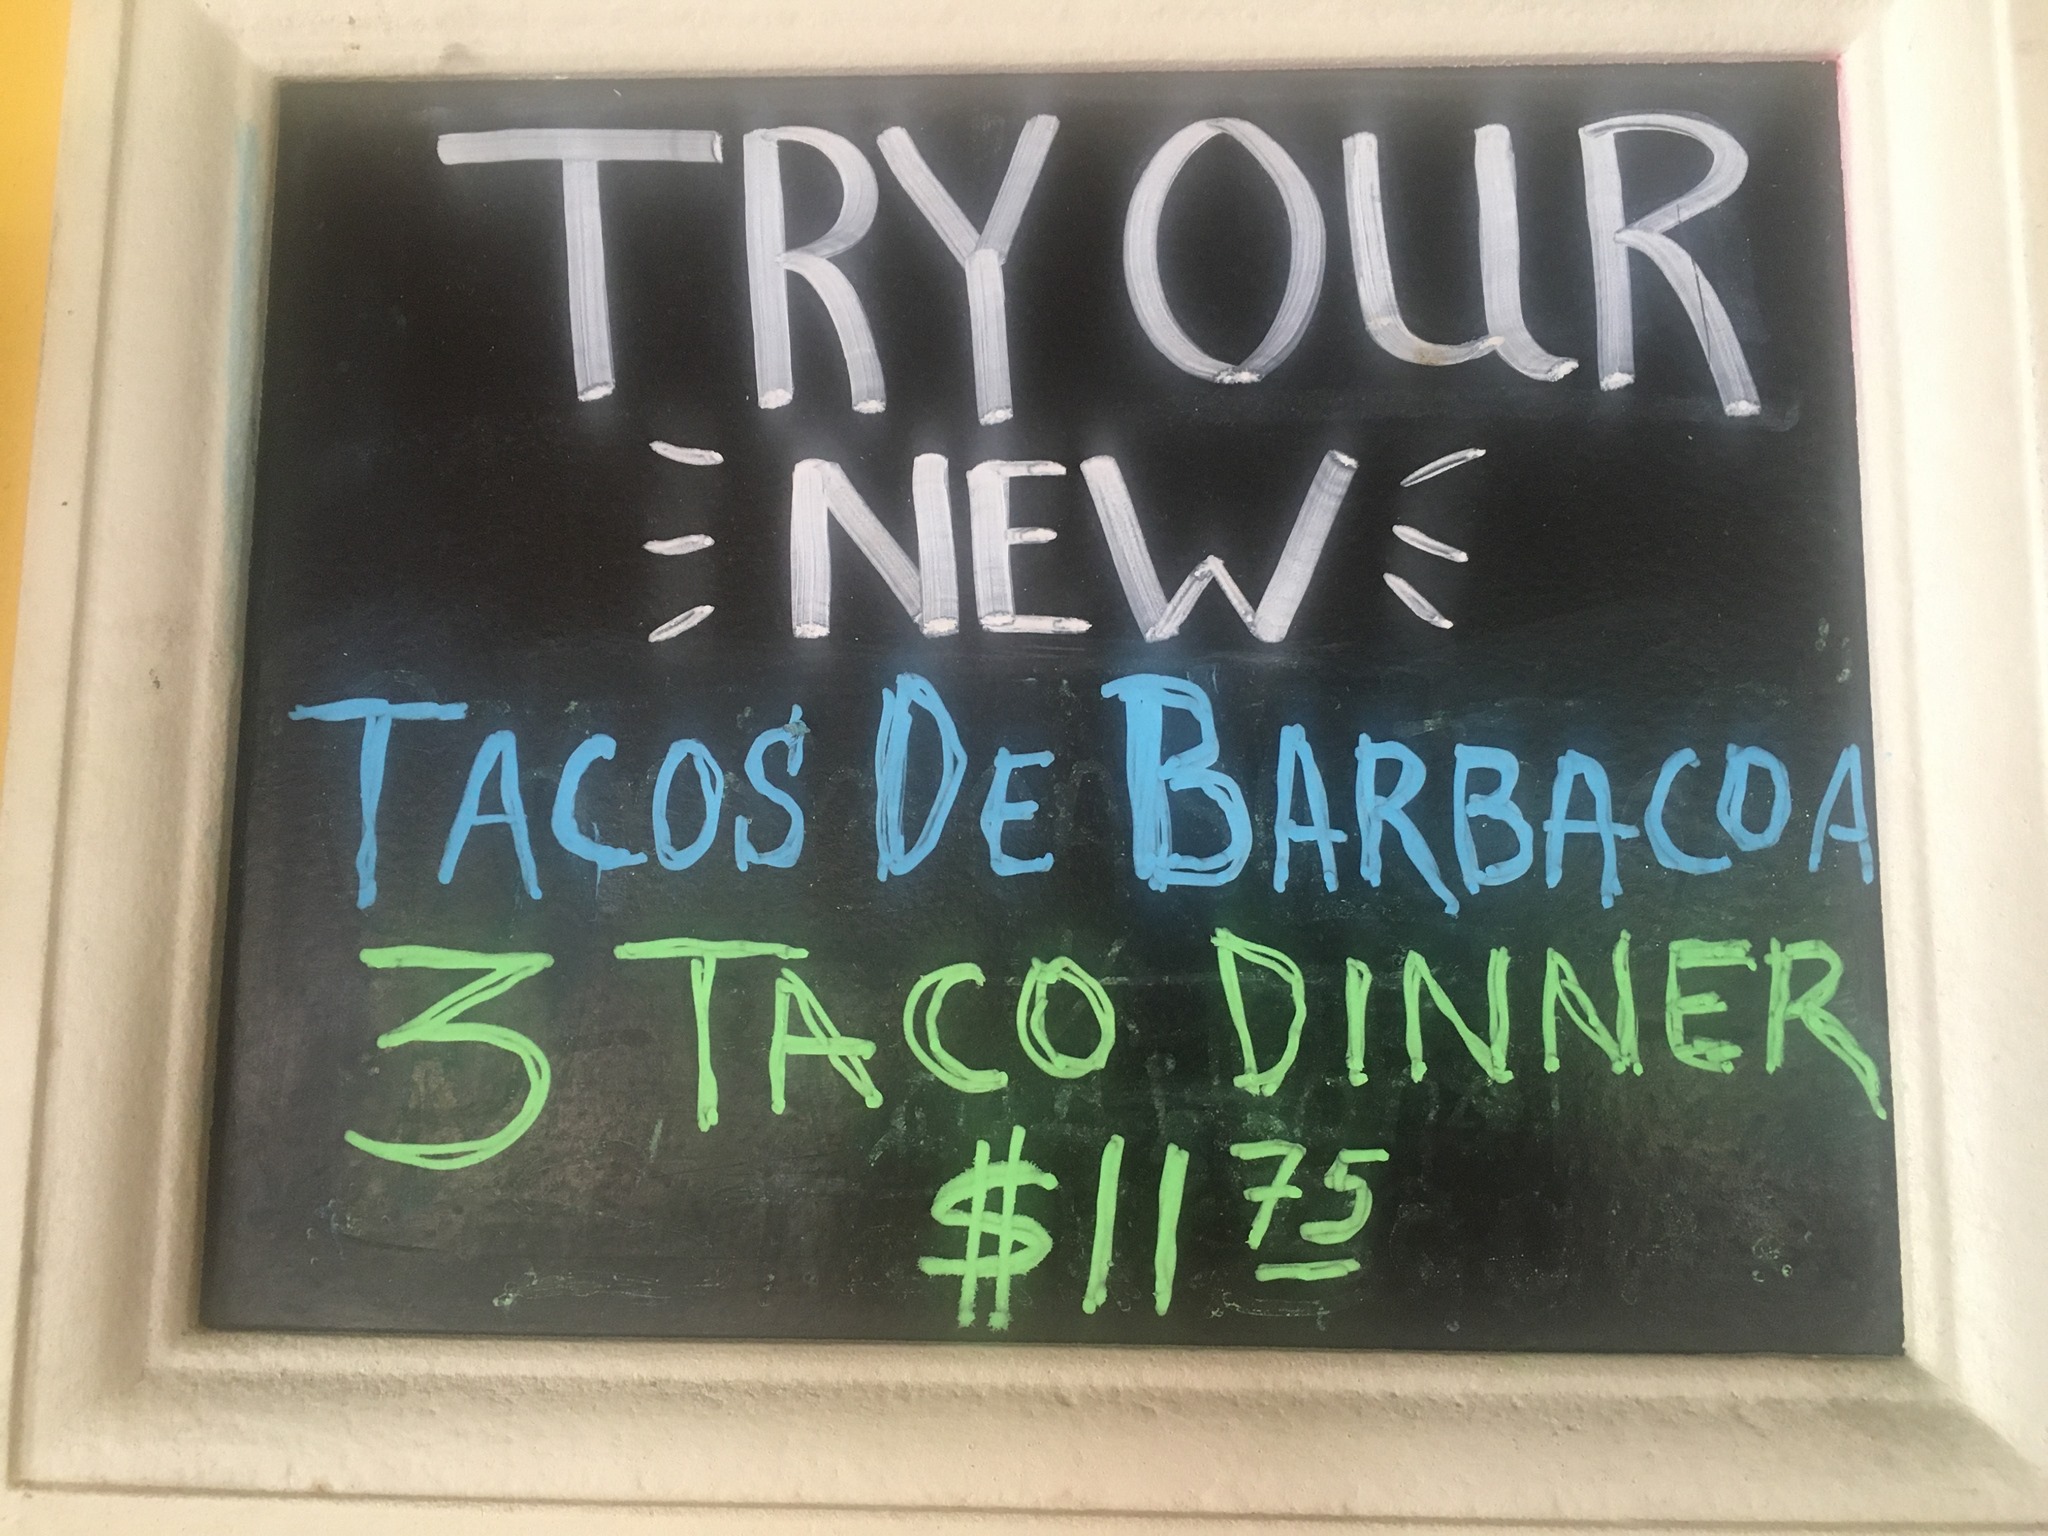 TRY OUR
NEW
TACOS DE BARBACOA
3 TACO DINNER
$11 75